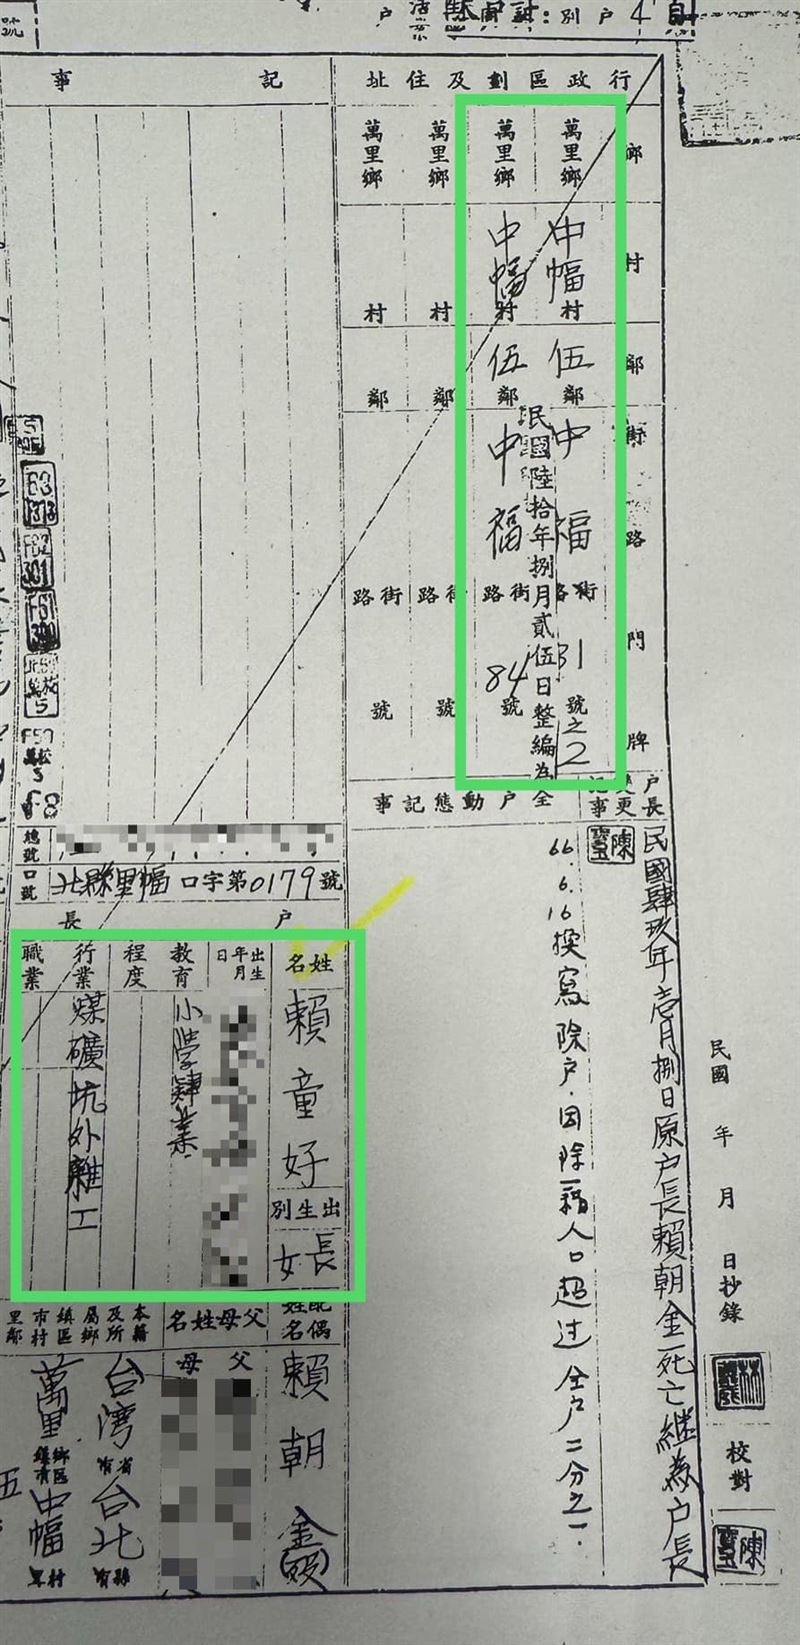 戶別：
行政區劃及住址
鄉
村
鄰
街
路
門
牌
萬里鄉
中幅村
伍鄰
中福路街
31號之2
萬里鄉
中幅村
伍鄰
中福路街
84號
民國陸拾年捌月貳伍日整編為
萬里鄉
村
鄰
路街
號
萬里鄉
村
鄰
路街
號
記事
戶長變更記事
民國肆玖年壹月捌日原户長賴朝金死亡繼為户長
全戶動態記事
66.6.16撰寫除户.因除籍人口超过全户二分之一.
民國 年 月 日抄錄
校對
總號
口號
北縣里幅口字第0179號
戶長
姓名
賴童好
出生別
長女
出生年月日
教育程度
小學肄業
行業
煤礦坑外雜工
職業
配偶姓名
賴朝金(歿)
父母姓名
父
母
本籍及所屬鄉鎮區市村里鄰
台湾省
台北縣
萬里鄉
中幅村
伍